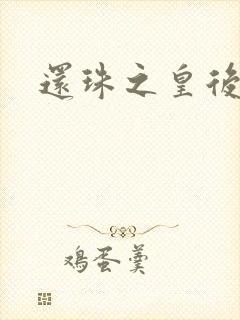 還珠之皇後
鸡蛋羹